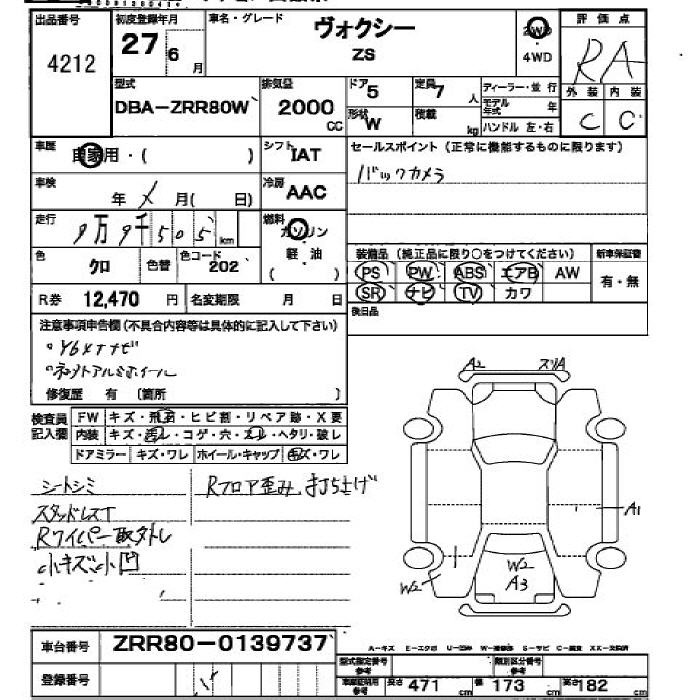 出品番号
4212
初度登録年月
27 6 月
車名・グレード
ヴォクシー
ZS
2WD
・
4WD
評価点
RA
外装 内装
C C
型式
DBA-ZRR80W
排気量
2000
CC
ドア 5
形状 W
定員 7 人
積載 kg
ディーラー・並行
モデル年式 年
ハンドル 左・右
車歴
自家用・( )
シフト IAT
セールスポイント(正常に機能するものに限ります)
バックカメラ
車検
年 月( 日)
冷房 AAC
走行
9万9千505 km
燃料
ガソリン
・
軽油
( )
色
クロ
色替
色コード
202
装備品(純正品に限り○をつけてください)
新車保証書
PS PW ABS エアB AW
SR ナビ TV カワ
有・無
R券 12,470 円
名変期限 月 日
後日品
注意事項申告欄(不具合内容等は具体的に記入して下さい)
修復歴 有 〔箇所 〕
検査員
記入欄
FW キズ・飛石・ヒビ割・リペア跡・X要
内装 キズ・汚レ・コゲ・穴・スレ・ヘタリ・破レ
ドアミラー キズ・ワレ ホイール・キャップ キズ・ワレ
シートシミ
スタッドレスT
Rワイパー取外し
小キズ小凹
Rフロア歪み、打ち上げ
A2 スリA
A1
W2
W2
A3
車台番号
ZRR80-0139737
登録番号
A-キズ E-エクボ U-凹み W-補修跡 S-サビ C-腐食 XX-交換済
型式指定番号
参考
類別区分番号
参考
車庫証明用
参考
長さ 471 cm
幅 173 cm
高さ 182 cm